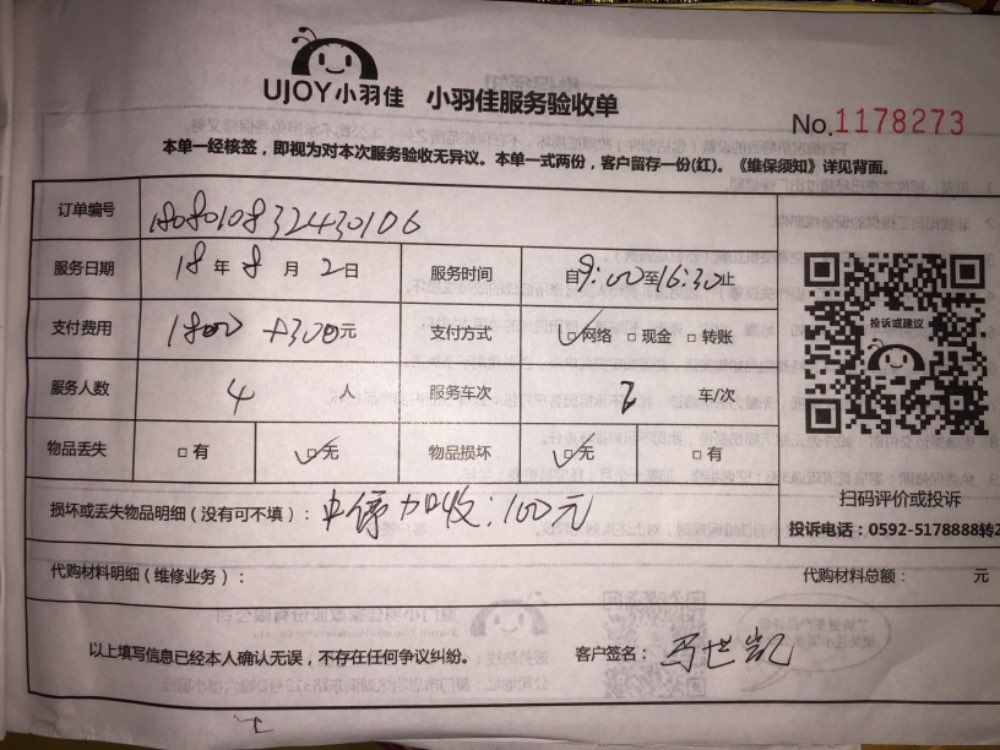 UJOY小羽佳 小羽佳服务验收单
No.1178273
本单一经核签，即视为对本次服务验收无异议。本单一式两份，客户留存一份(红)。《维保须知》详见背面。
订单编号 1808010832430106
服务日期 18年8月2日 服务时间 自9:00至16:30止
支付费用 1800+300元 支付方式 ☑网络 □现金 □转账
投诉或建议
服务人数 4人 服务车次 2车/次
物品丢失 □有 ☑无 物品损坏 ☑无 □有
扫码评价或投诉
损坏或丢失物品明细（没有可不填）： 中停加收：100元
投诉电话：0592-5178888转2
代购材料明细（维修业务）： 代购材料总额： 元
以上填写信息已经本人确认无误，不存在任何争议纠纷。 客户签名： 马世凯